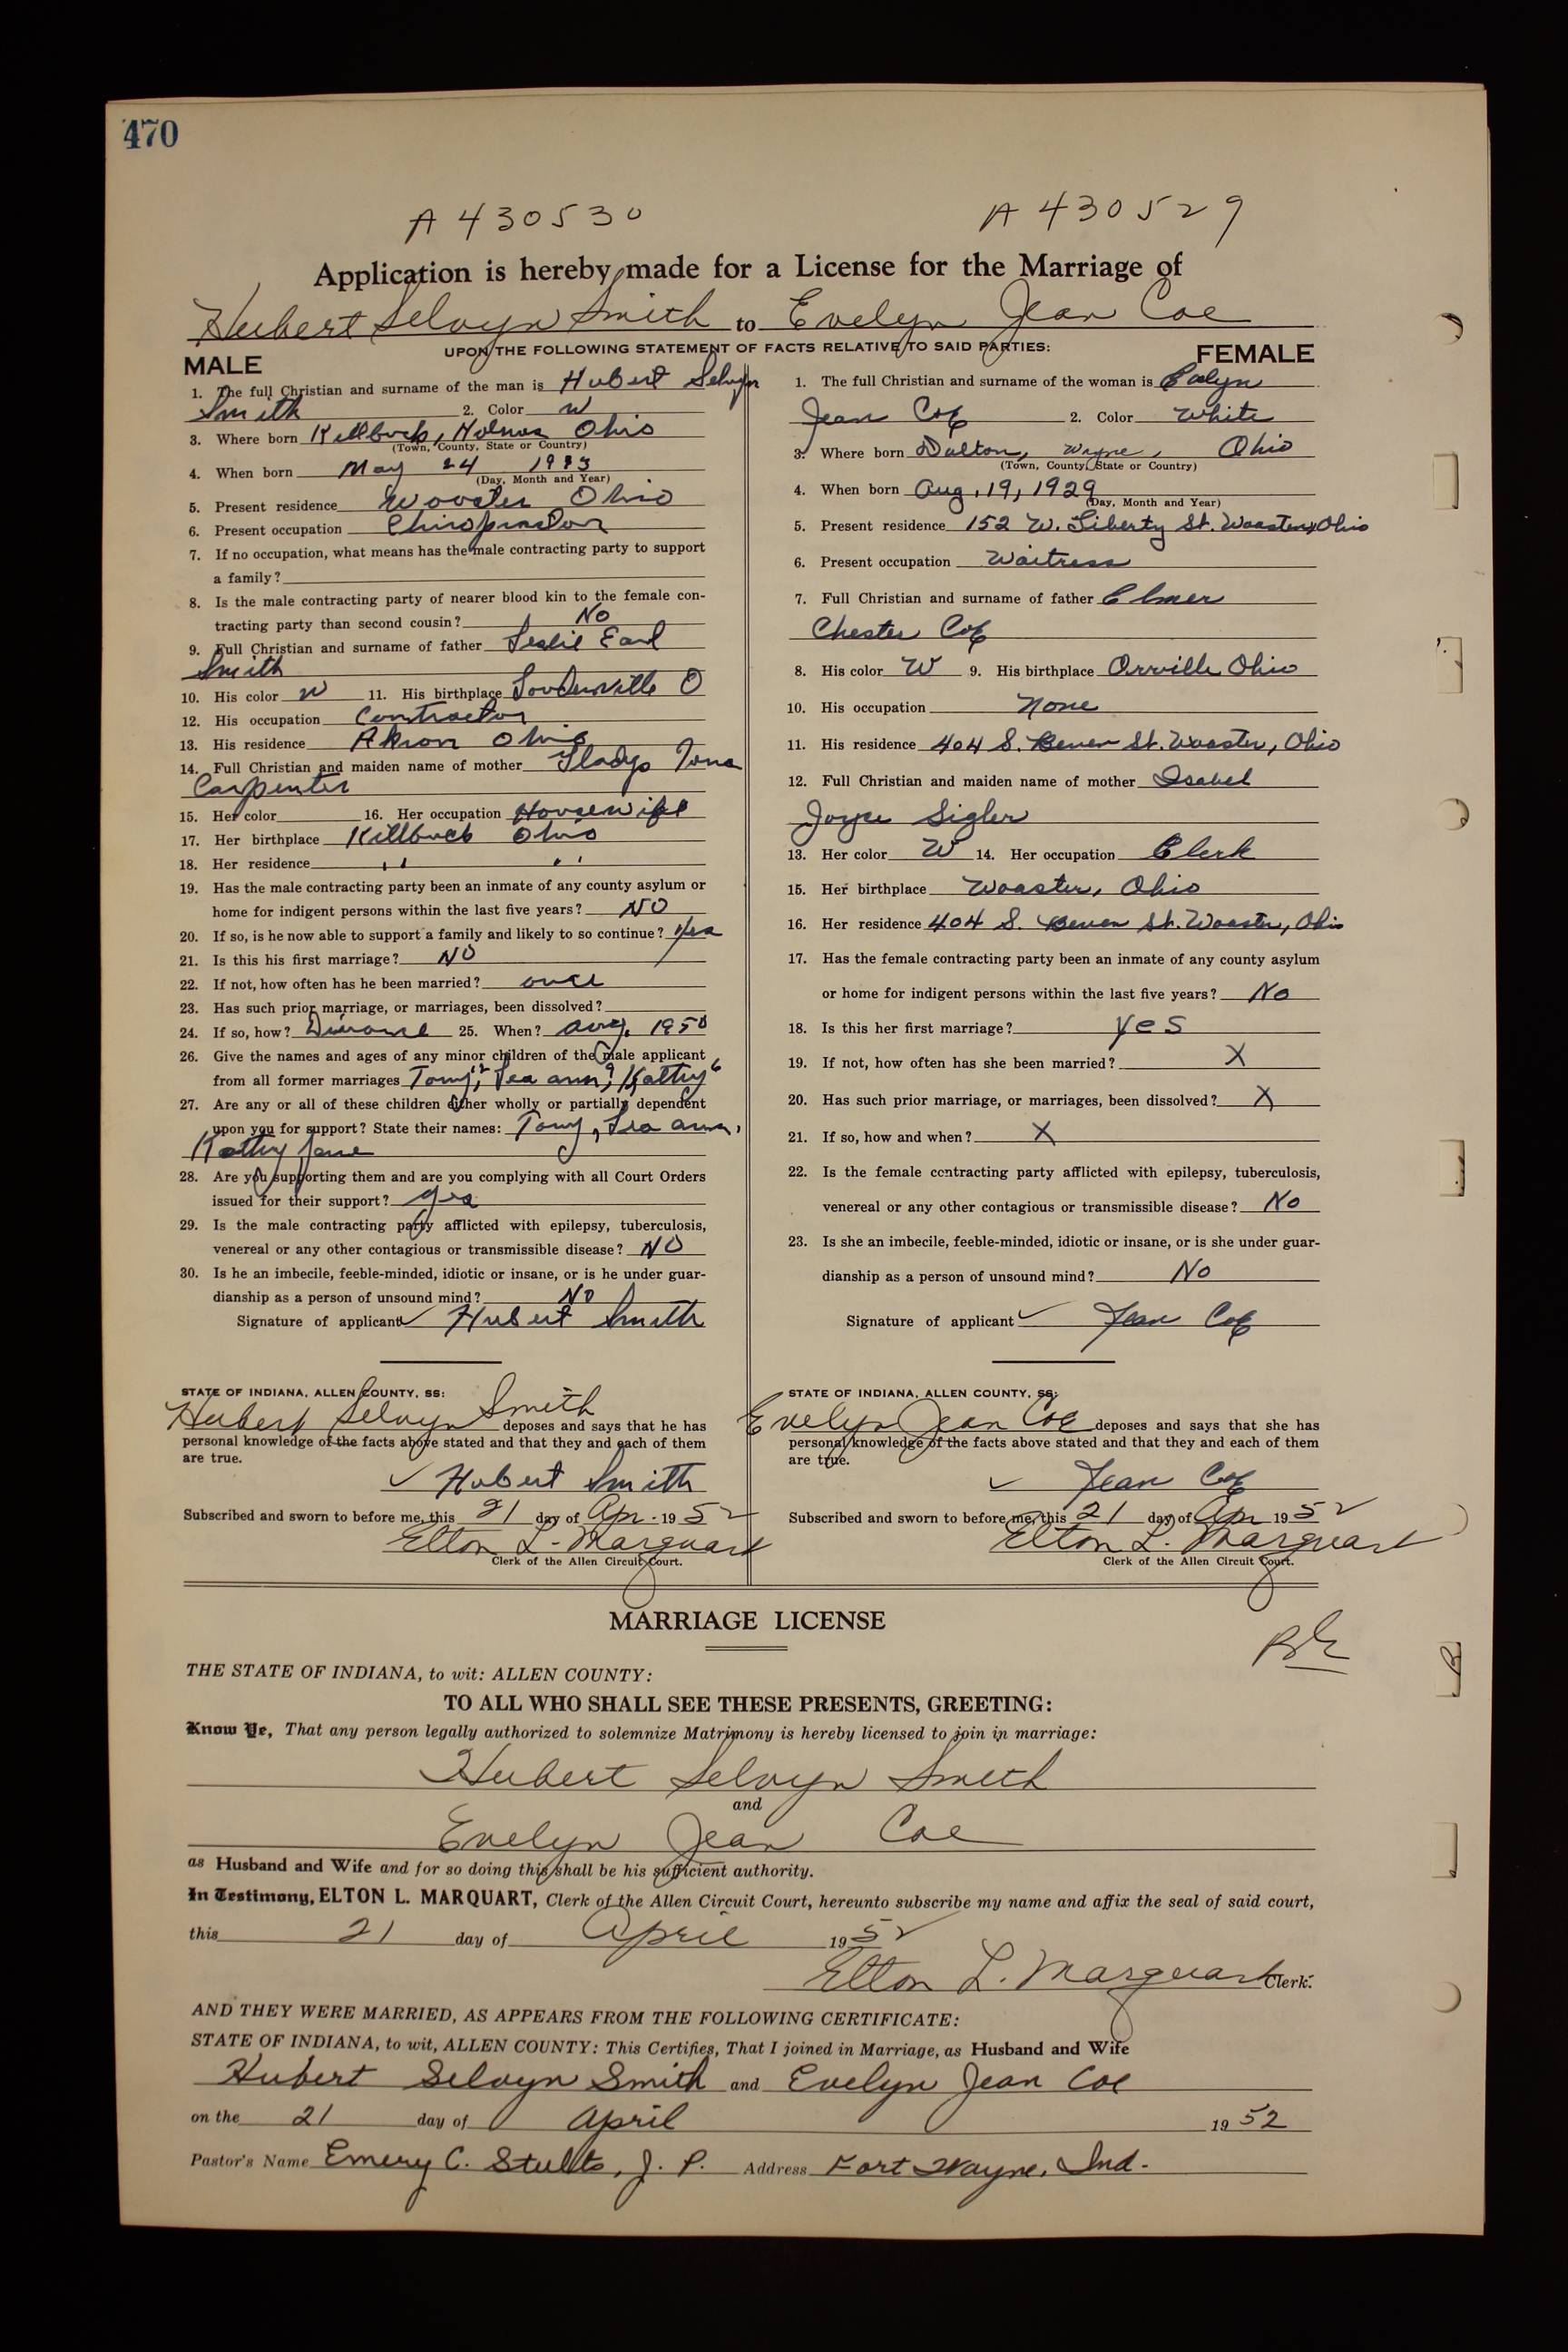 470
A 430530 A 430529
Application is hereby made for a License for the Marriage of
Hubert Selvyn Smith to Evelyn Jean Coe
UPON THE FOLLOWING STATEMENT OF FACTS RELATIVE TO SAID PARTIES:
MALE
1. The full Christian and surname of the man is Hubert Selvyn
Smith 2. Color W
3. Where born Killbuck, Holmes Ohio
(Town, County, State or Country)
4. When born May 24
(Day, Month and Year)
5. Present residence Wooster Ohio
6. Present occupation Chiropractor
7. If no occupation, what means has the male contracting party to support
a family?
8. Is the male contracting party of nearer blood kin to the female con-
tracting party than second cousin? No
9. Full Christian and surname of father Leslie Earl
Smith
10. His color W 11. His birthplace Loudenville O
12. His occupation Contractor
13. His residence Akron Ohio
14. Full Christian and maiden name of mother Gladys Iona
Carpenter
15. Her color 16. Her occupation Housewife
17. Her birthplace Killbuck Ohio
18. Her residence " "
19. Has the male contracting party been an inmate of any county asylum or
home for indigent persons within the last five years? NO
20. If so, is he now able to support a family and likely to so continue? Yes
21. Is this his first marriage? NO
22. If not, how often has he been married? once
23. Has such prior marriage, or marriages, been dissolved?
24. If so, how? Divorce 25. When? Aug. 1950
26. Give the names and ages of any minor children of the male applicant
from all former marriages Tony 12, Lea ann 9, Kathy 6
27. Are any or all of these children either wholly or partially dependent
upon you for support? State their names: Tony, Lea ann,
Kathy Jane
28. Are you supporting them and are you complying with all Court Orders
issued for their support? yes
29. Is the male contracting party afflicted with epilepsy, tuberculosis,
venereal or any other contagious or transmissible disease? NO
30. Is he an imbecile, feeble-minded, idiotic or insane, or is he under guar-
dianship as a person of unsound mind? NO
Signature of applicant ✓ Hubert Smith
STATE OF INDIANA, ALLEN COUNTY, SS:
Hubert Selvyn Smith deposes and says that he has
personal knowledge of the facts above stated and that they and each of them
are true.
✓ Hubert Smith
Subscribed and sworn to before me, this 21 day of Apr. 1952
Elton L. Marquart
Clerk of the Allen Circuit Court.
FEMALE
1. The full Christian and surname of the woman is Evelyn
Jean Coe 2. Color White
3. Where born Dalton, Wayne, Ohio
(Town, County, State or Country)
4. When born Aug. 19, 1929
(Day, Month and Year)
5. Present residence 152 W. Liberty St. Wooster, Ohio
6. Present occupation Waitress
7. Full Christian and surname of father Elmer
Chester Coe
8. His color W 9. His birthplace Orrville Ohio
10. His occupation None
11. His residence 404 S. Bever St. Wooster, Ohio
12. Full Christian and maiden name of mother Isabel
Joyce Sigler
13. Her color W 14. Her occupation Clerk
15. Her birthplace Wooster, Ohio
16. Her residence 404 S. Bever St. Wooster, Ohio
17. Has the female contracting party been an inmate of any county asylum
or home for indigent persons within the last five years? No
18. Is this her first marriage? Yes
19. If not, how often has she been married? X
20. Has such prior marriage, or marriages, been dissolved? X
21. If so, how and when? X
22. Is the female contracting party afflicted with epilepsy, tuberculosis,
venereal or any other contagious or transmissible disease? No
23. Is she an imbecile, feeble-minded, idiotic or insane, or is she under guar-
dianship as a person of unsound mind? No
Signature of applicant ✓ Jean Coe
STATE OF INDIANA, ALLEN COUNTY, SS:
Evelyn Jean Coe deposes and says that she has
personal knowledge of the facts above stated and that they and each of them
are true.
✓ Jean Coe
Subscribed and sworn to before me, this 21 day of Apr 1952
Elton L. Marquart
Clerk of the Allen Circuit Court.
MARRIAGE LICENSE
THE STATE OF INDIANA, to wit: ALLEN COUNTY:
TO ALL WHO SHALL SEE THESE PRESENTS, GREETING:
Know Ye, That any person legally authorized to solemnize Matrimony is hereby licensed to join in marriage:
Hubert Selvyn Smith
and
Evelyn Jean Coe
as Husband and Wife and for so doing this shall be his sufficient authority.
In Testimony, ELTON L. MARQUART, Clerk of the Allen Circuit Court, hereunto subscribe my name and affix the seal of said court,
this 21 day of April 1952
Elton L. Marquart Clerk.
AND THEY WERE MARRIED, AS APPEARS FROM THE FOLLOWING CERTIFICATE:
STATE OF INDIANA, to wit, ALLEN COUNTY: This Certifies, That I joined in Marriage, as Husband and Wife
Hubert Selvyn Smith and Evelyn Jean Coe
on the 21 day of April 1952
Pastor's Name Emery C. Stults, J. P. Address Fort Wayne, Ind.